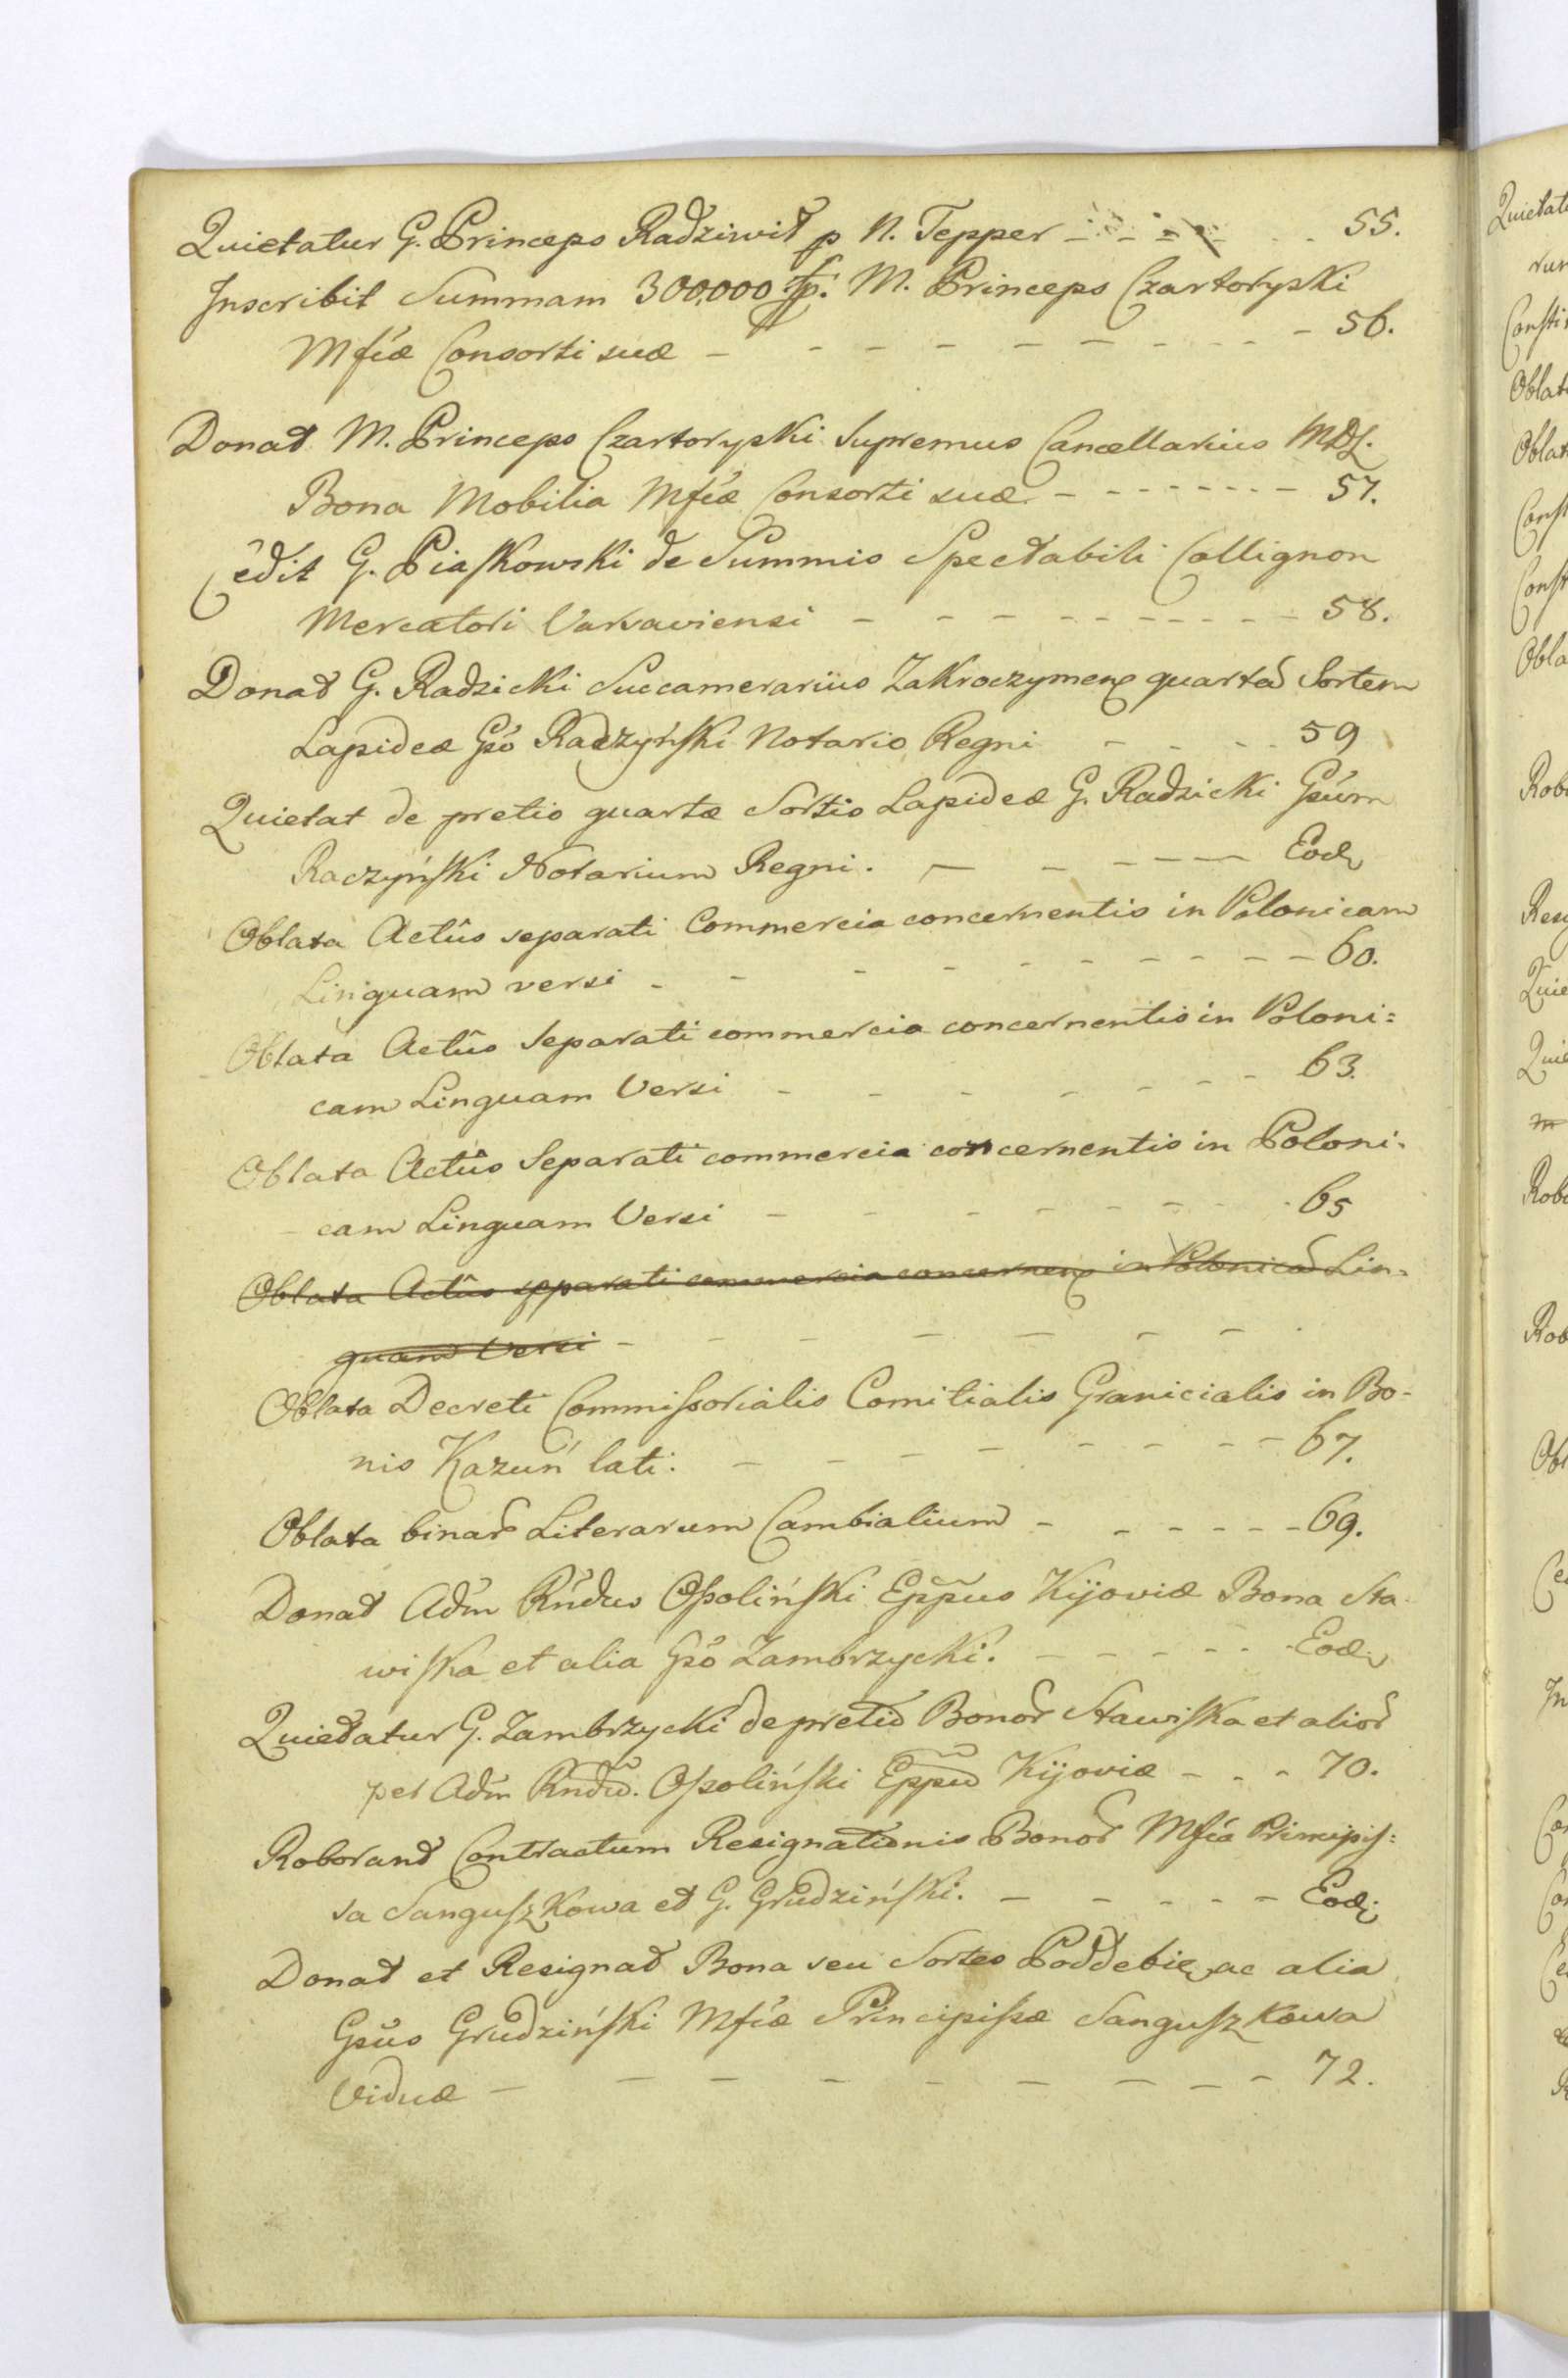 Quietatur G. Princeps Radziwił p N. Tepper - - - - - - 55.
Inscribit Summam 300,000 fp. M. Princeps Czartoryski
Mfiæ Consorti suæ - - - - - - - - - 56.
Donat M. Princeps Czartoryski Supremus Cancellarius MDL.
Bona Mobilia Mfiæ Consorti suæ - - - - - - - 57.
Cedit G. Piaskowski de Summis Spectabili Collignon
Mercatori Varsaviensi - - - - - - - - - 58.
Donat G. Radzicki Succamerarius Zakroczymens quartã Sortem
Lapideæ Gso Raczyński Notario Regni - - - - 59
Quietat de pretio quartæ Sortis Lapideæ G. Radzicki Gsum
Raczyński Notarium Regni. - - - - - Eod
Oblata Actûs separati Commercia concernentis in Polonicam
Linguam versi - - - - - - - - - 60.
Oblata Actûs Separati commercia concernentis in Poloni=
cam Linguam Versi - - - - - - - 63.
Oblata Actûs Separati commercia concernentis in Poloni-
cam Linguam Versi - - - - - - - 65
Oblata Actûs separati commercia concernen in Polonicã Lin-
guam Versi - - - - - - -
Oblata Decreti Commissorialis Comitialis Granicialis in Bo-
nis Kazuń lati. - - - - - - - 67.
Oblata binar Literarum Cambialium - - - - - - 69.
Donat Adm Rndus Ossoliński Eppus Kijoviæ Bona Sta-
wiska et alia Gso Zambrzycki. - - - - - Eod.
Quietatur G. Zambrzycki de pretio Bonor Stawiska et alior
per Adm Rndũ. Ossoliński Eppũ Kijoviæ - - - 70.
Roborant Contractum Resignationis Bonor Mfia Principis=
sa Sanguszkowa et G. Grudziński. - - - - - Eod.
Donat et Resignat Bona seu Sortes Poddebie ac alia
Gsus Grudziński Mfiæ Principissæ Sanguszkowa
Viduæ - - - - - - - - - 72.